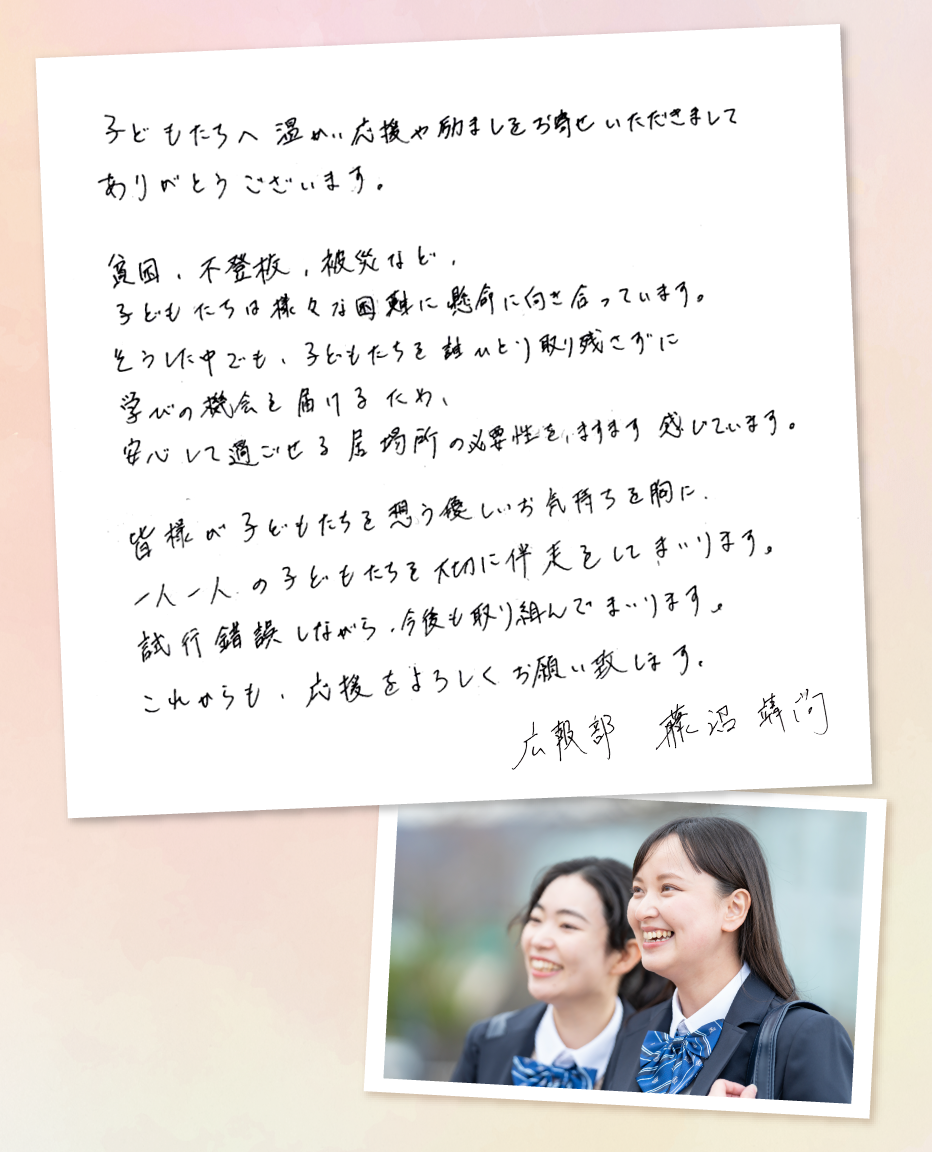 子どもたちへ温かい応援や励ましをお寄せいただきまして
ありがとうございます。
貧困、不登校、被災など、
子どもたちは様々な困難に懸命に向き合っています。
そうした中でも、子どもたちを誰ひとり取り残さずに
学びの機会を届けるため、
安心して過ごせる居場所の必要性を、ますます感じています。
皆様が子どもたちを想う優しいお気持ちを胸に、
一人一人の子どもたちを大切に伴走をしてまいります。
試行錯誤しながら、今後も取り組んでまいります。
これからも、応援をよろしくお願い致します。
広報部 藤沼